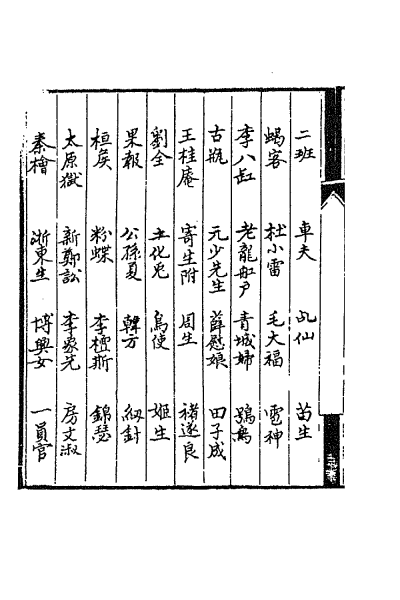 二班 車夫 乩仙 苗生
蝎客 杜小雷 毛大福 雹神
李八缸 老龍舡戶 青城婦 鴞鳥
古瓶 元少先生 薛慰娘 田子成
王桂庵 寄生附 周生 褚遂良
劉全 土化兔 鳥使 姬生
果報 公孫夏 韓方 紉針
桓矦 粉蝶 李檀斯 錦瑟
太原獄 新鄭訟 李象先 房文淑
秦檜 浙東生 博興女 一員官